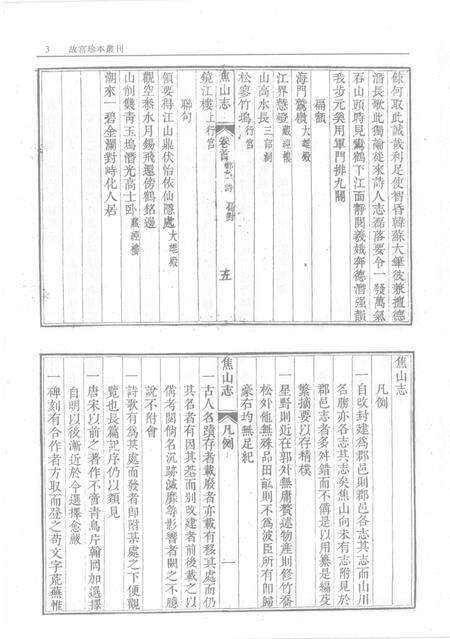 3 故宮珍本叢刊
餘何取此誠裁利足使智昏韓蘇大筆彼兼擅德
潛長歌此獨論從來詩人志磊落要令一發萬氣
石山頭時見鸞鶴下江面靜閱羲娥奔德潛强韻
我步元矣用軍門排九關
匾額
海門鷲嶺大雄殿
江界慧燈藏經樓
山高水長三詔洞
松寥竹塢行宮
焦山志 卷首 五
鏡江樓上行宮
聯句
領要得江山鼎伏怡依仙隱處大雄殿
觀空叅水月錫飛還傍鶴銘邊
山劍龑靑玉塢潛光高士卧藏經樓
潮來一碧金瀾對峙化人居
焦山志
凡例
一自改封建為郡邑則郡邑各志其志而山川
名勝亦各志其志矣焦山向未有志附見於
郡邑志者多舛錯而不備是以用纂是編芟
繁摘要以存精檏
一星野則近在郭外無庸贅述物產則修竹喬
松外他無殊品田畝則不為波臣所有卽歸
豪右均無足紀
焦山志 凡例 一
一古人名蹟存者載廢者亦載有移其處而仍
其名者有因其基而别改建者前後載之以
備考閱倘名沉跡滅靡等影響者闕之不臆
說不附會
一詩歌有為某處而發者卽附某處之下便觀
覽也長篇記序仍以類見
一唐宋以前之著作不啻靑鳥片翰罔加選擇
自明以後漸近於今選擇愈嚴
一碑刻有合作者方取而登之苟文字荒蕪惟